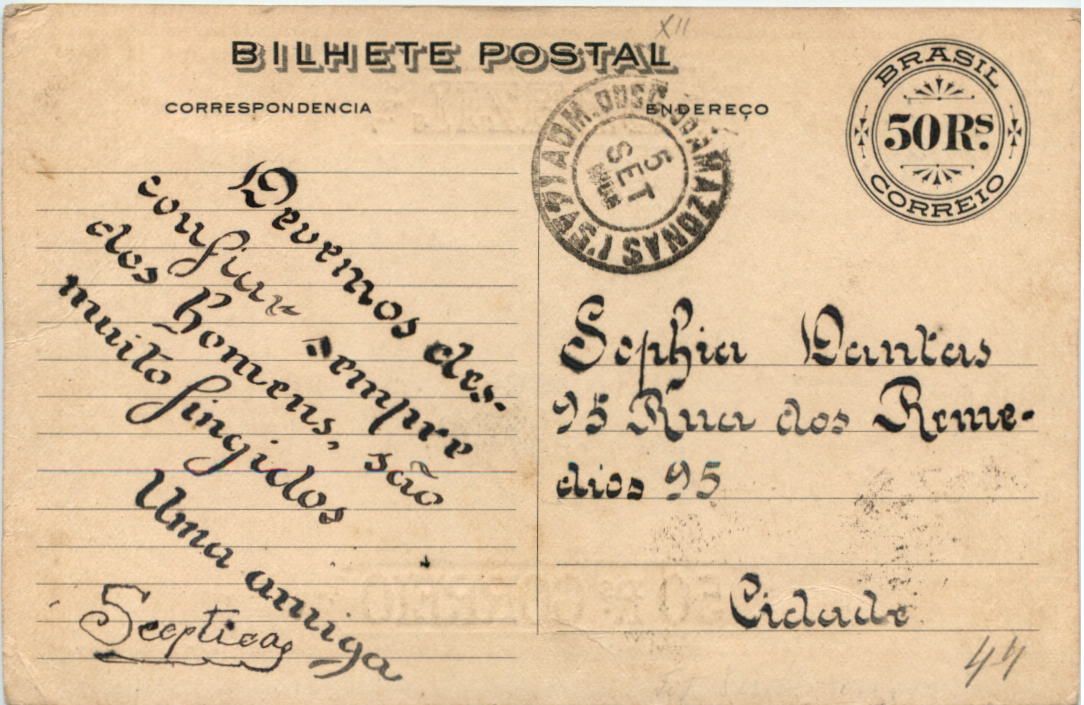 XII
BILHETE POSTAL
CORRESPONDENCIA
ENDEREÇO
BRASIL
50RS.
CORREIO
5
SET
AMAZONAS
Devemos des-
confiar sempre
dos homens, são
muito fingidos
Uma amiga
Scepticas
Sophia Dantas
95 Rua dos Reme-
dios 95
Cidade
44